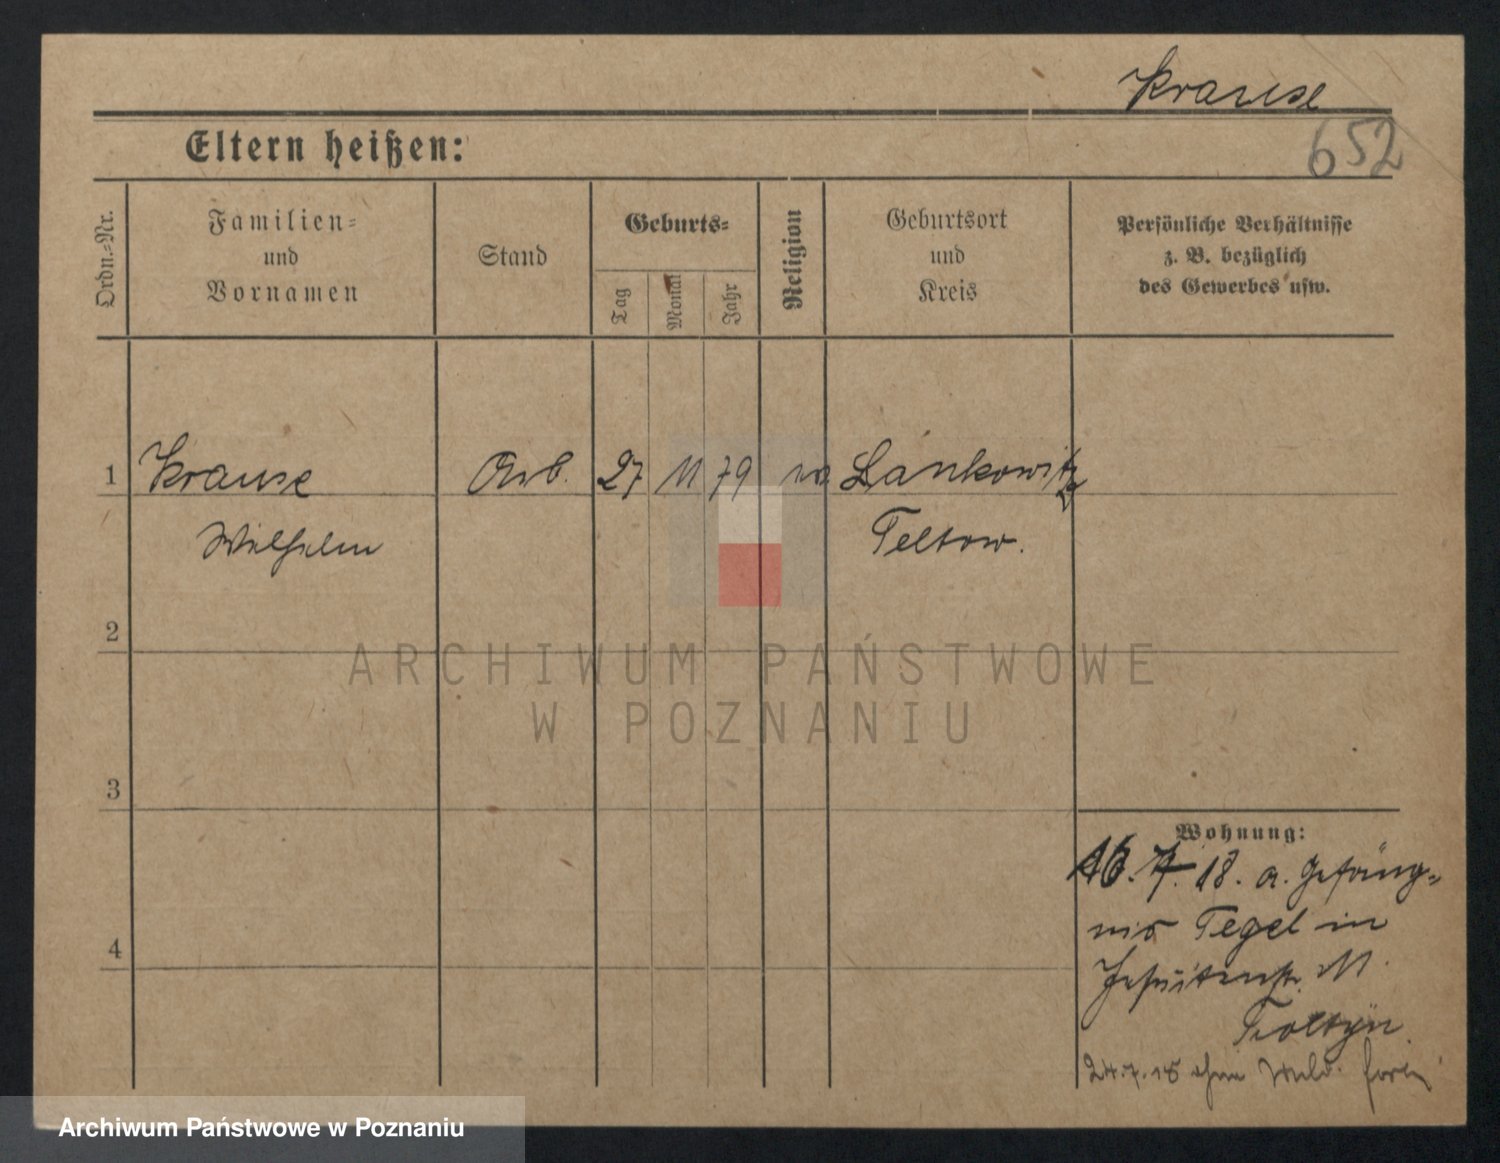 Krause
652
Eltern heißen:
Ordn.=Nr.
Familien= und Vornamen
Stand
Geburts=
Tag
Monat
Jahr
Religion
Geburtsort und Kreis
Persönliche Verhältnisse
z. B. bezüglich
des Gewerbes usw.
1 Krause Arb. 27 11 79 Lankowitz
Wilhelm Teltow.
2
3
4
Wohnung:
16. 7. 18. a. Gefäng=
nis Tegel in
Jesuitenstr.
24.7.18 ohne Meld. fort
ARCHIWUM PAŃSTWOWE
W POZNANIU
Archiwum Państwowe w Poznaniu